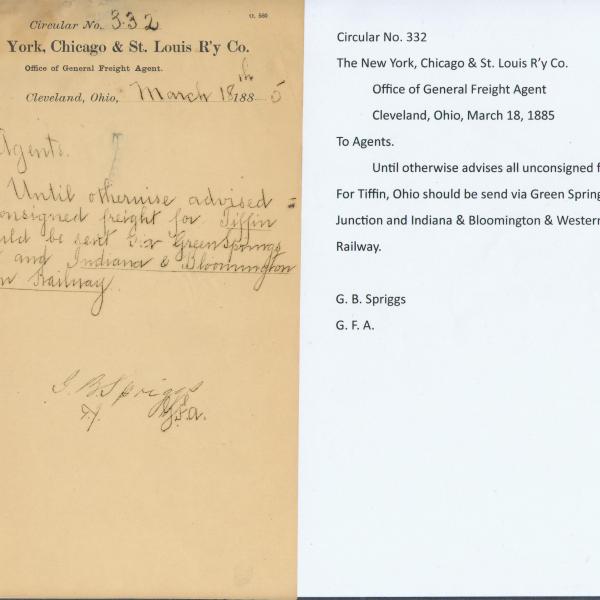 Circular No. 332
G. 560
York, Chicago & St. Louis R'y Co.
Office of General Freight Agent.
Cleveland, Ohio, March 18th 1885
Agents.
Until otherwise advised
onsigned freight for Tiffin
uld be sent Green Springs
and Indiana & Bloomington
n Railway.
G. B. Spriggs
G.F.a.
Circular No. 332
The New York, Chicago & St. Louis R'y Co.
Office of General Freight Agent
Cleveland, Ohio, March 18, 1885
To Agents.
Until otherwise advises all unconsigned f
For Tiffin, Ohio should be send via Green Spring
Junction and Indiana & Bloomington & Western
Railway.
G. B. Spriggs
G. F. A.